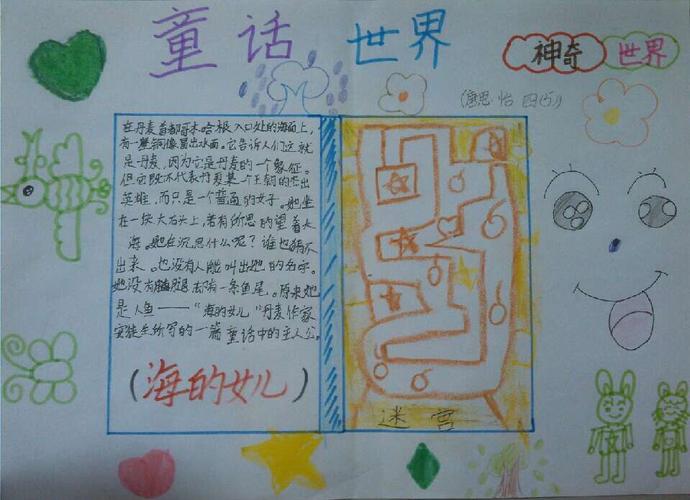 童话世界
神奇世界
(唐思怡 四(5))
在丹麦首都哥本哈根入口处的海面上,
有一座铜像冒出水面。它告诉人们这就
是丹麦,因为它是丹麦的一个象征。
但它既不代表丹麦某一个王朝的杰出
英雄,而只是一个普通的女子。她坐
在一块大石头上,若有所思的望着大
海。她在沉思什么呢?谁也猜不
出来。也没有人能叫出她的名字。
她没有腿却有一条鱼尾。原来她
是人鱼——“海的女儿”丹麦作家
安徒生所写的一篇童话中的主人公。
(海的女儿)
迷宫